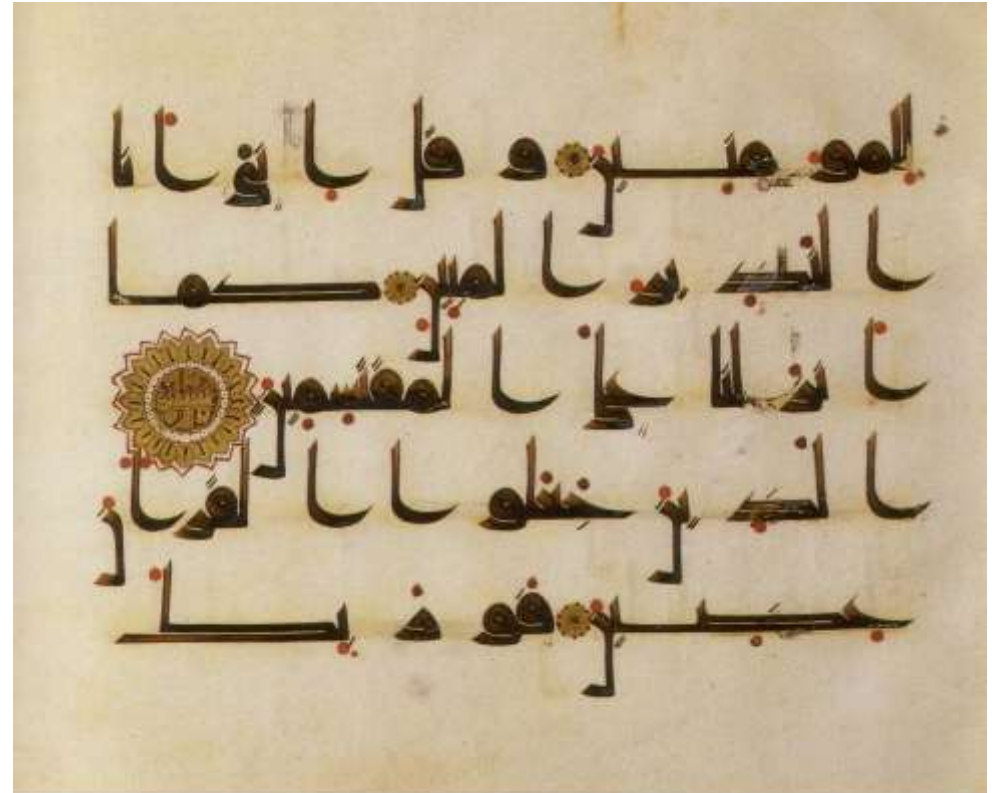 للمومنين وقل اني انا
النذير المبين كما
انزلنا على المقتسمين
الذين جعلوا القران
عضين فوربك